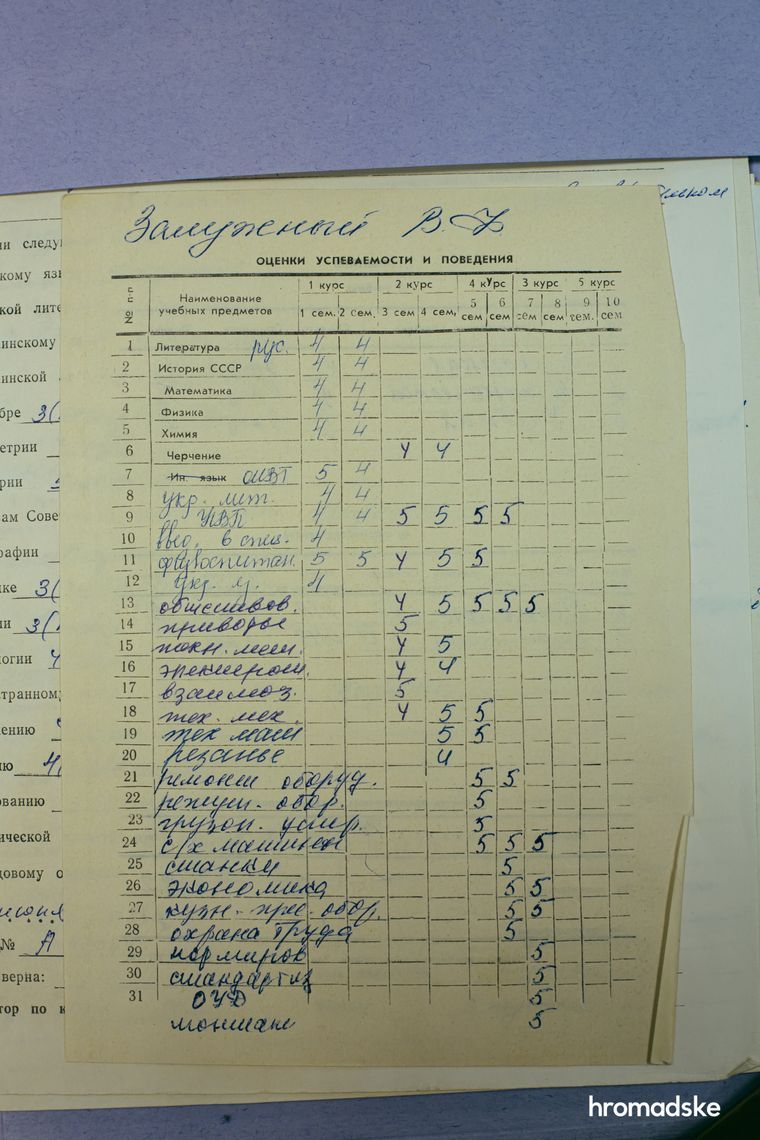 Залужный В.Ф
ОЦЕНКИ УСПЕВАЕМОСТИ И ПОВЕДЕНИЯ
№ п п Наименование учебных предметов 1 курс 2 курс 4 курс 3 курс 5 курс
1 сем. 2 сем. 3 сем 4 сем. 5 сем 6 сем 7 сем 8 сем 9 сем. 10 сем
1 Литература рус. 4 4
2 История СССР 4 4
3 Математика 4 4
4 Физика 4 4
5 Химия 4 4
6 Черчение 4 4
7 Ин. язык ОИВТ 5 4
8 укр. лит. 4 4
9 НВП 4 4 5 5 5 5
10 ввод. в спец. 4
11 физвоспитан. 5 5 4 5 5
12 укр. я. 4
13 обществов. 4 5 5 5 5
14 5
15 техн. мет. 4 5
16 электрот. 4 4
17 взаимоз. 5
18 тех. мех. 4 5 5
19 тех маш 5 5
20 резанье 4
21 ремонт оборуд. 5 5
22 режущ. обор. 5
23 грузоп. устр. 5
24 с/х машин 5 5 5
25 станки 5
26 экономика 5 5
27 кузн. прес. обор. 5 5
28 охрана труда 5
29 нормиров 5
30 стандартиз 5
31 ОУД 5
монтаж 5
ни следу
скому яз
кой лите
инскому
инской
бре 3(
метрии
рии
ам Сове
рафии
ике 3(
ии 3(
логии 4
странному
ению
ию 4(
ованию
ической
довому о
№ А
верна:
тор по к
hromadske